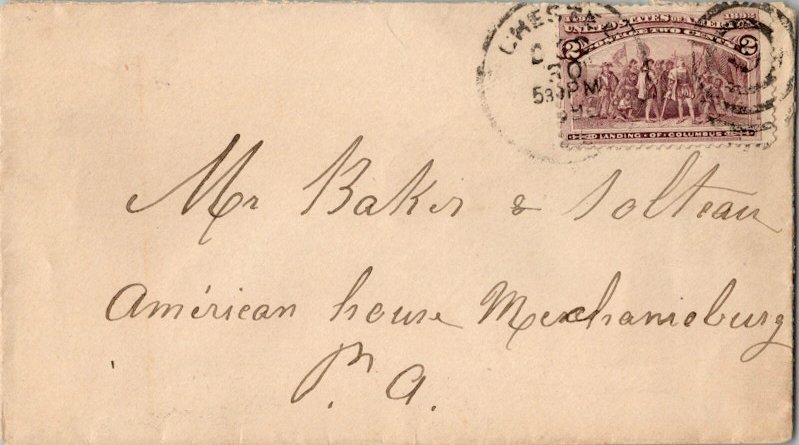 CHEST
D
30
530PM
1492 1892
UNITED STATES OF AMERICA
POSTAGE TWO CENTS
2 2
LANDING · OF · COLUMBUS
Mr Baker & Solteau
Américan house Mechanicburg
P. A.